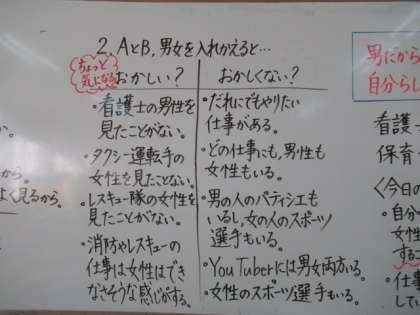 2. AとB, 男女を入れかえると…
ちょっと
気になる
おかしい?
・看護士の男性を
見たことがない。
・タクシー運転手の
女性を見たことない。
・レスキュー隊の女性を
見たことがない。
・消防やレスキューの
仕事は女性はでき
なさそうな感じがする。
おかしくない?
・だれにでもやりたい
仕事がある。
・どの仕事にも,男性も
女性もいる。
・男の人のパティシエも
いるし,女の人のスポーツ
選手もいる。
・YouTuberには男女両方いる。
・女性のスポーツ選手もいる。
か。
から。
よく見るから。
男だから
自分らし
看護
保育
〈今日の
・自分
女性
する
・仕事
して